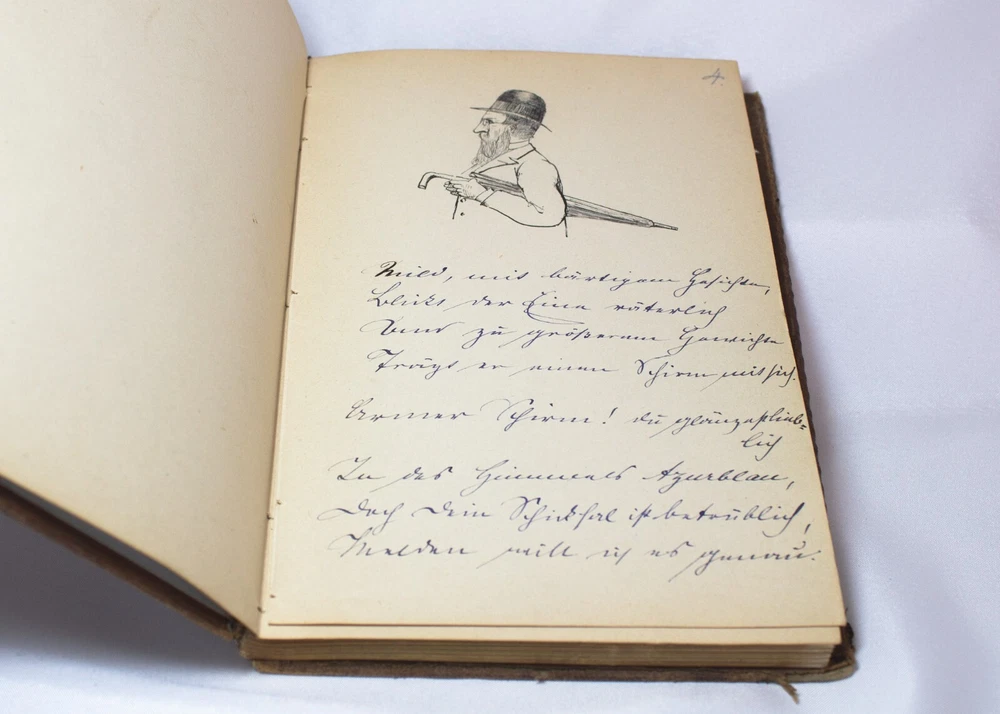 4.
Mild, mit bärtigem Gesichte,
Blickt der Eine väterlich
Und zu größerem Gewichte
Trägt er einen Schirm mit sich.
Armer Schirm! du glänzest lieb-
lich
In des Himmels Azurblau,
Doch Dein Schicksal ist betrüblich,
Melden will ich es genau: